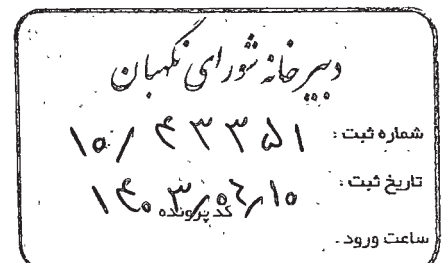 دبیرخانه شورای نگهبان
شماره ثبت : ۱۰/ ۴۳۳۵۱
تاریخ ثبت : ۱۴۰۳/۰۶/۱۰
کد پرونده
ساعت ورود -